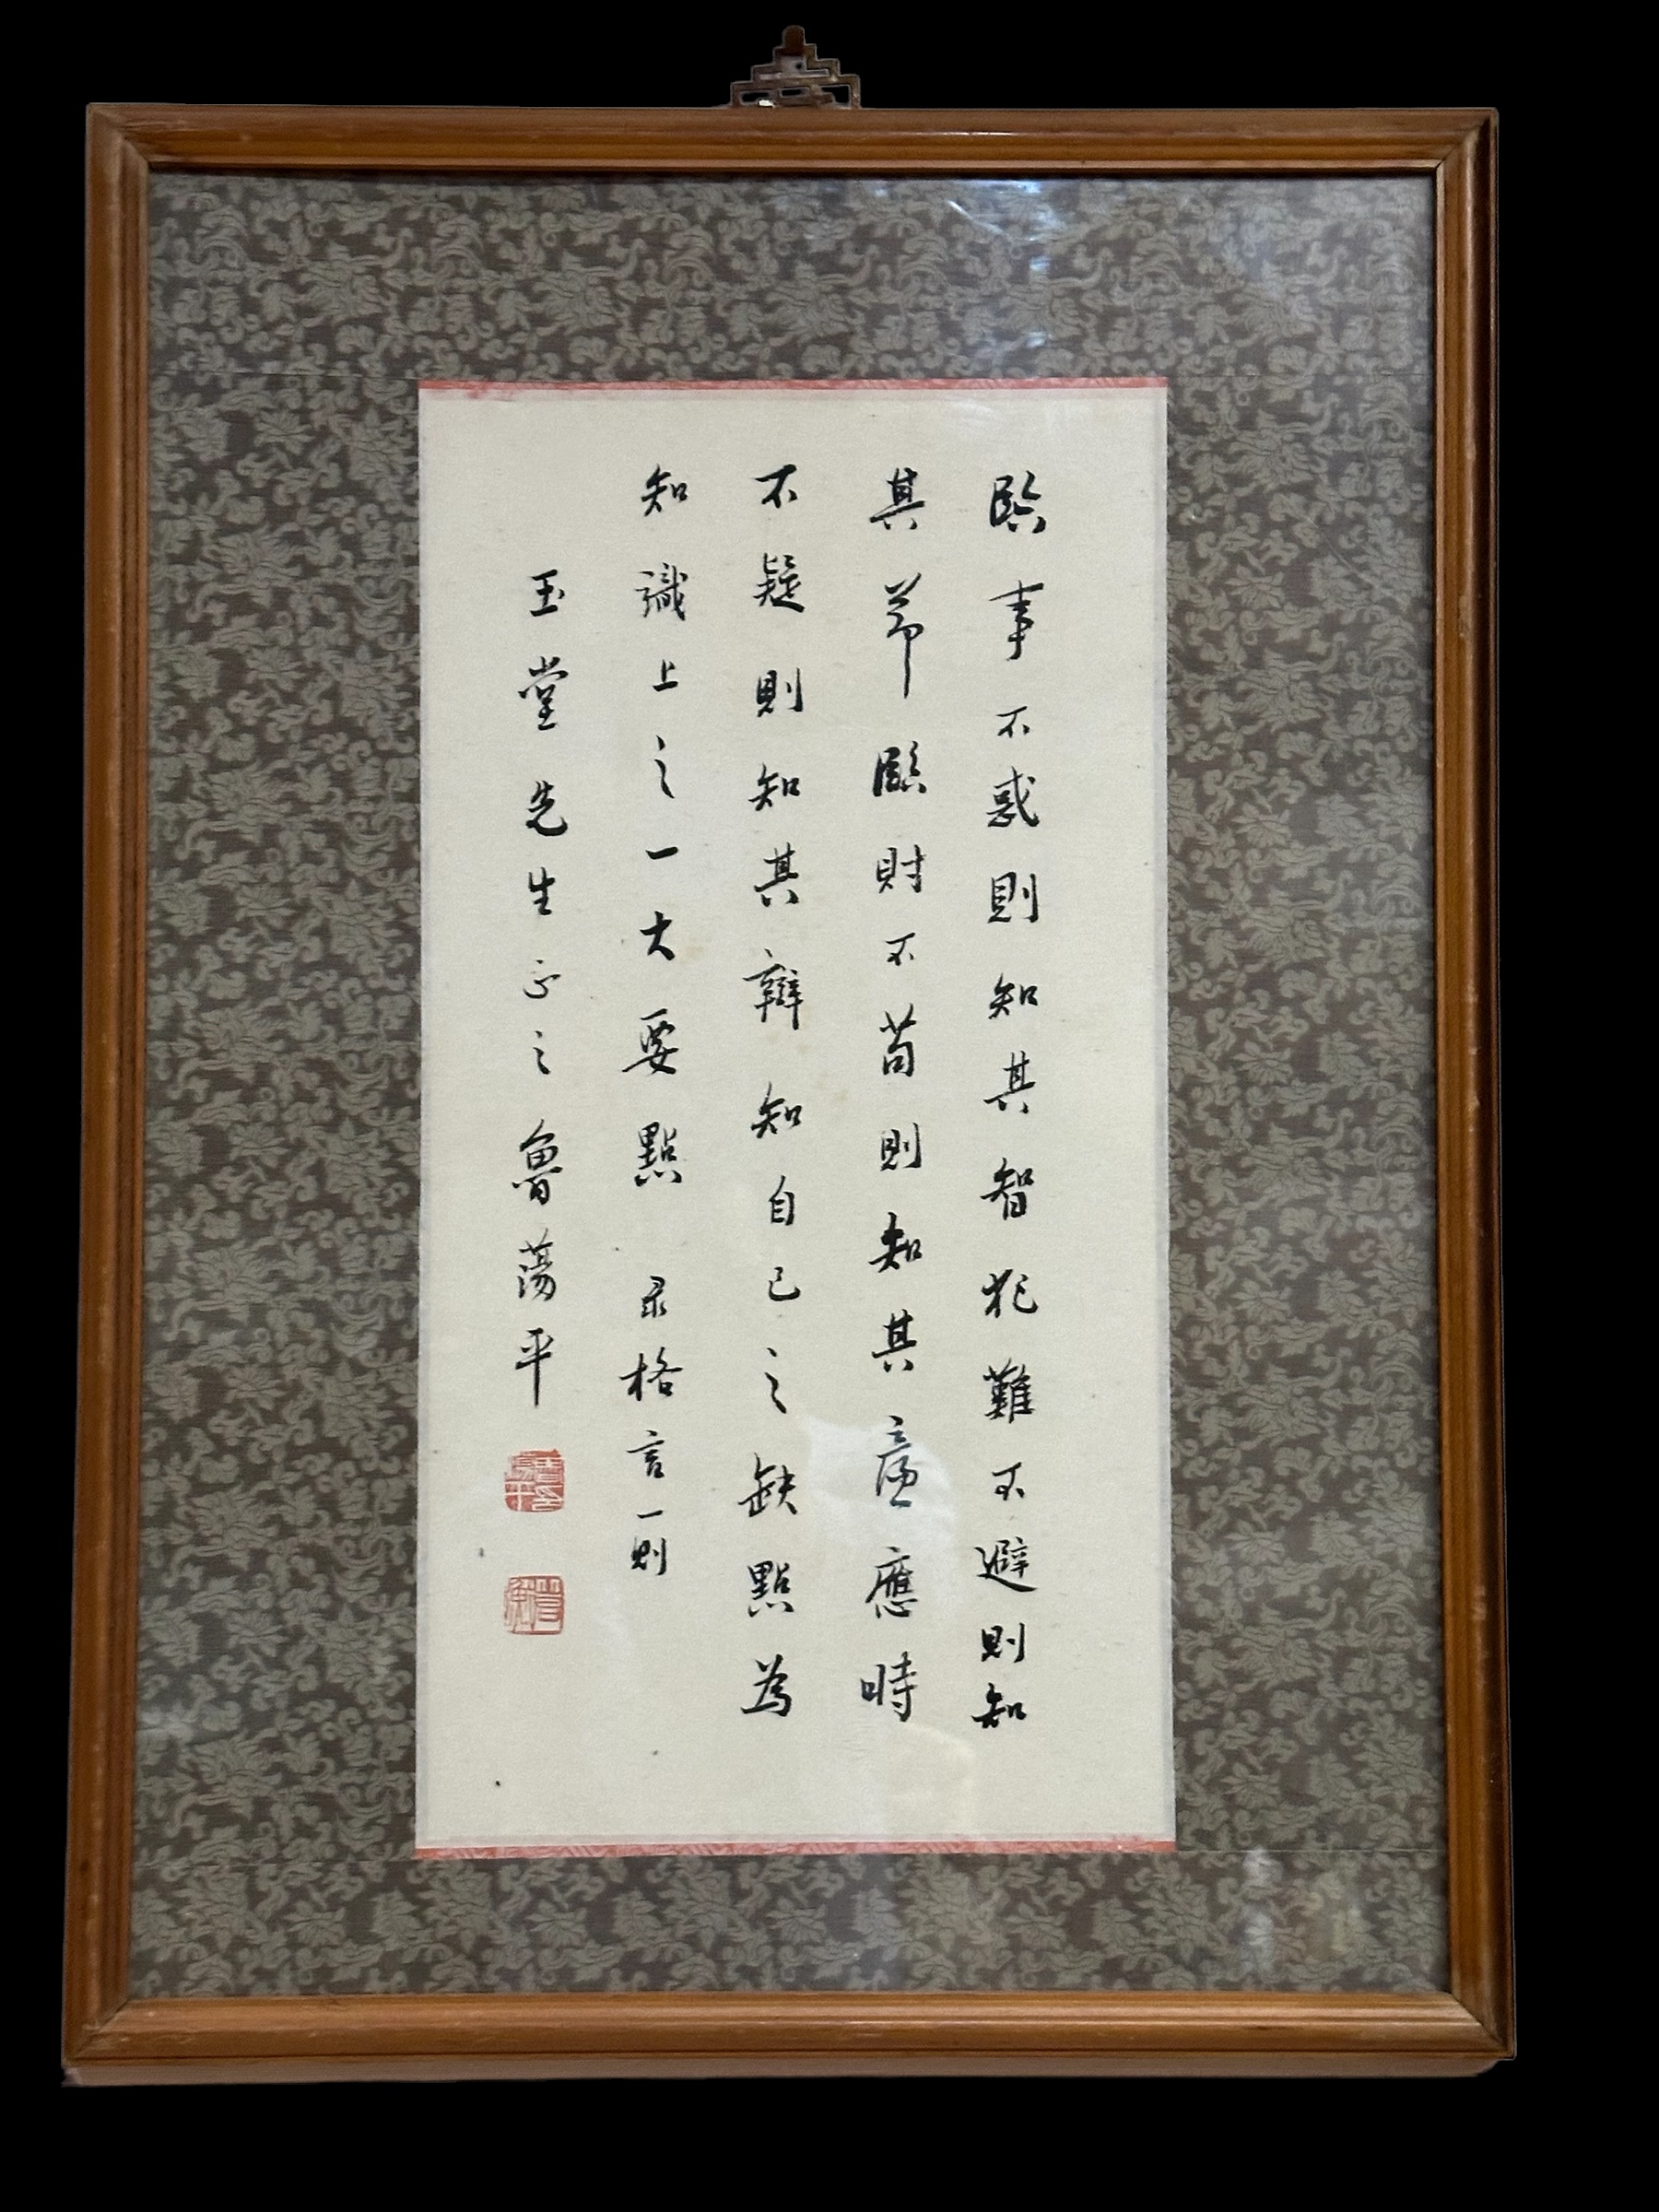 臨事不惑則知其智犯難不避則知
其節臨財不苟則知其廉應時
不疑則知其辯知自己之缺點為
知識上之一大要點 录格言一則
玉堂先生正之魯蕩平